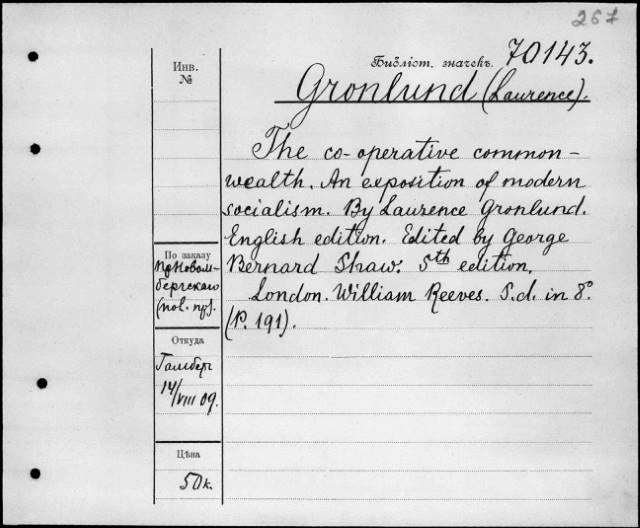 267
Инв.
№
Библіот. значекъ. 70143.
Gronlund (Laurence).
The co-operative common-
wealth. An exposition of modern
socialism. By Laurence Gronlund.
English edition. Edited by George
Bernard Shaw. 5th edition.
London. William Reeves. S.d. in 8°.
(P. 191).
По заказу
Откуда
14/VIII 09.
Цѣна
50к.